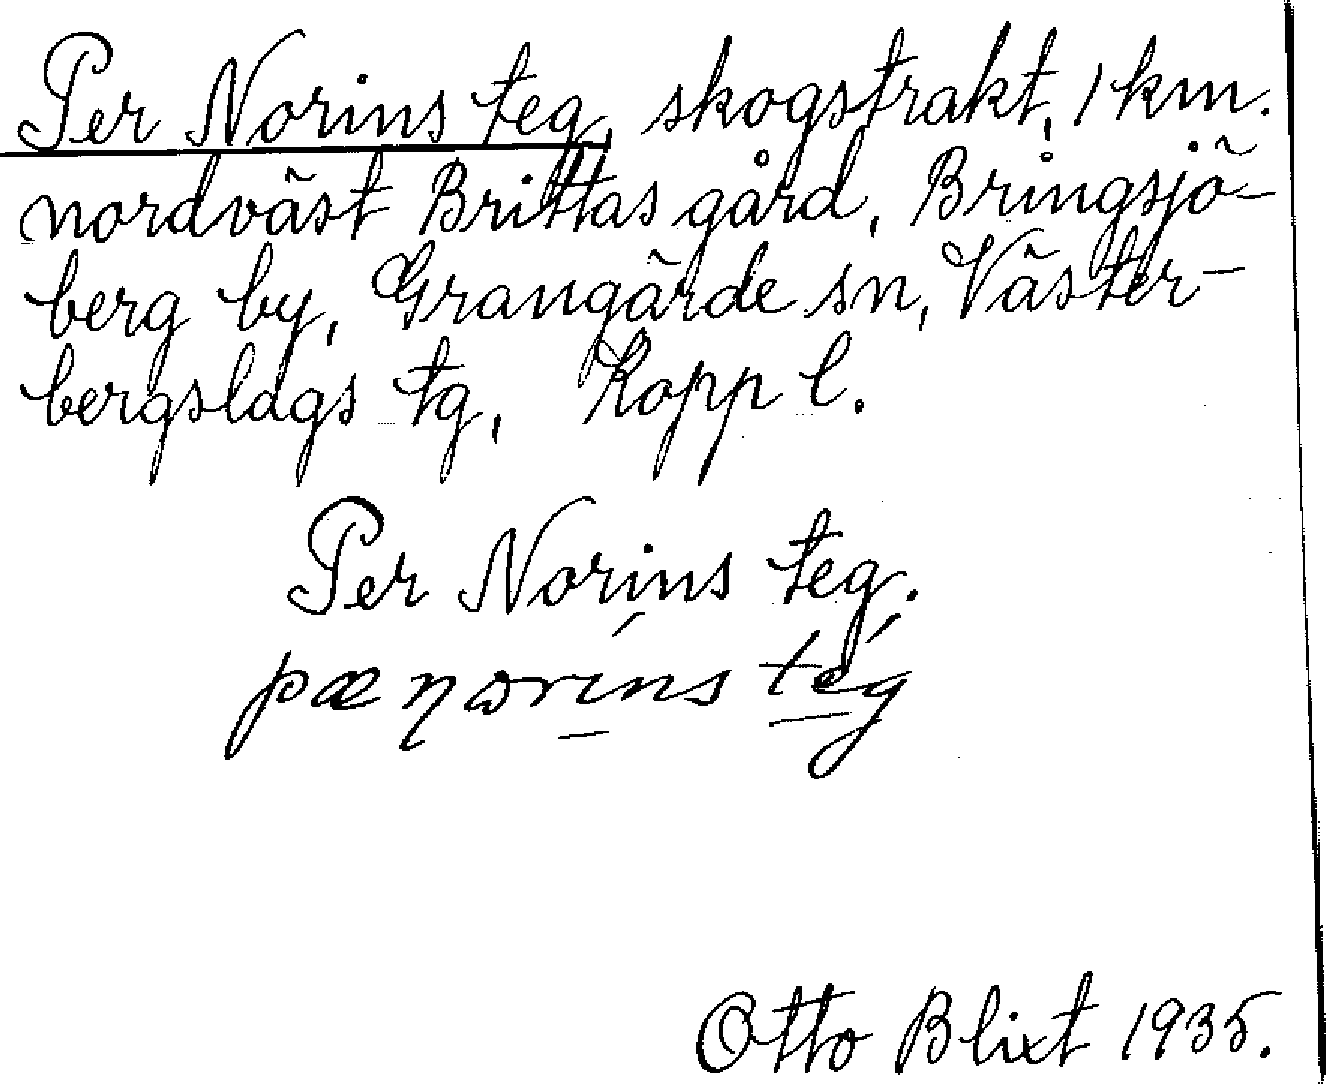 Per Norins teg, skogstrakt, 1 km.
nordväst Brittas gård, Bringsjö-
berg by, Grangärde sn, Väster-
bergslags tg, Kopp l.
Per Norins teg.
pæ ɳɷrins teg
Otto Blixt 1935.